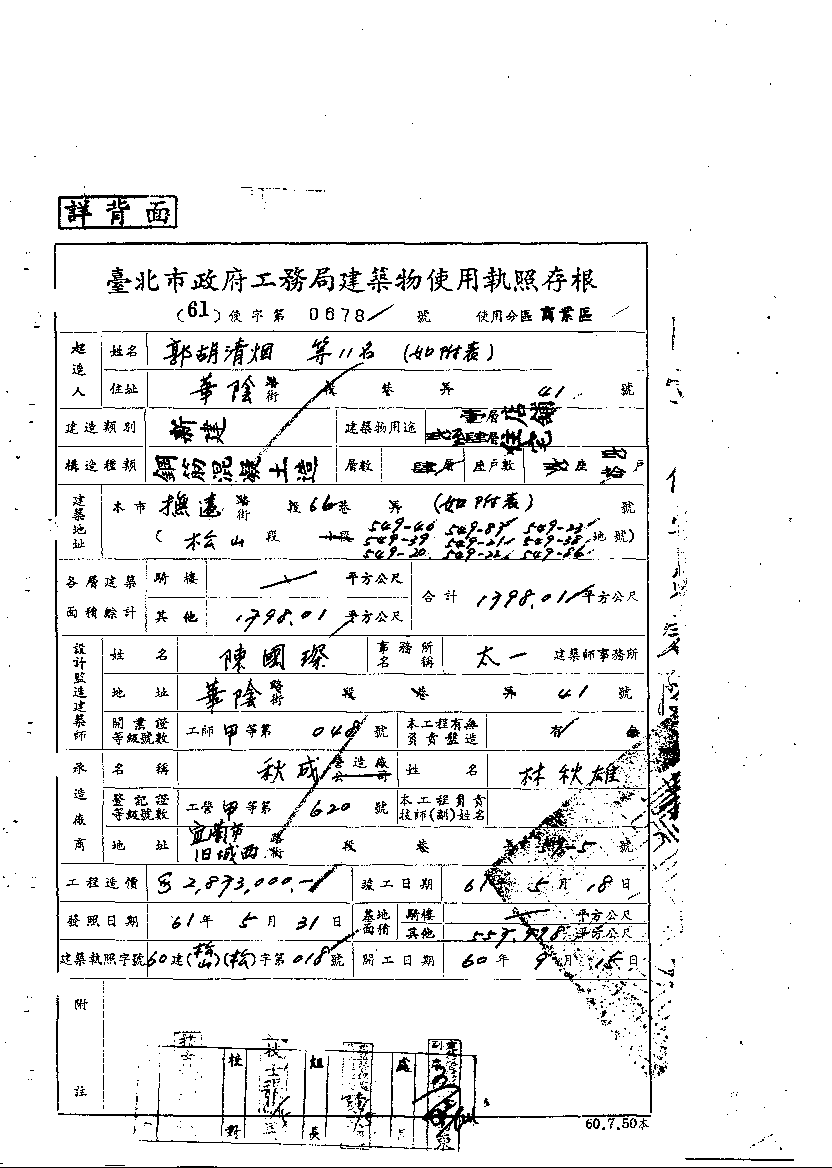 詳背面
臺北市政府工務局建築物使用執照存根
(61)使字第 0678 號 使用分區 商業區
起造人 姓名 郭胡清烟 等11名 (如附表)
住址 華陰路街 段 巷 弄 41 號
建造類別 新建 建築物用途 壹層店鋪 貳至肆層住宅
構造種類 鋼筋混凝土造 層數 肆層 座戶數 座 戶
建築地址 本市 撫遠路街 段 66巷 弄 (如附表) 號
(松山段 小段 549-40 549-83 549-23 地號)
549-39 549-21 549-38
549-20 549-22 549-86
各層建築面積綜計 騎樓 平方公尺 合計 1798.01 平方公尺
其他 1798.01 平方公尺
設計監造建築師 姓名 陳國璨 事務所名稱 太一 建築師事務所
地址 華陰路街 段 巷 弄 41 號
開業證等級號數 工師 甲 等第 048 號 本工程有無負責監造 有 無
承造廠商 名稱 秋成 營造廠公司 姓名 林秋雄
登記證等級號數 工營 甲 等第 620 號 本工程負責技師(副)姓名
地址 宜蘭市旧城西路街 段 巷 號
工程造價 $2,893,000.- 竣工日期 61年 5月 18日
發照日期 61年 5月 31日 基地面積 騎樓 平方公尺
其他 559.998 平方公尺
建築執照字號 60建(松山)(松)字第018號 開工日期 60年 9月 15日
附註
技士
組長
處
60.7.50本